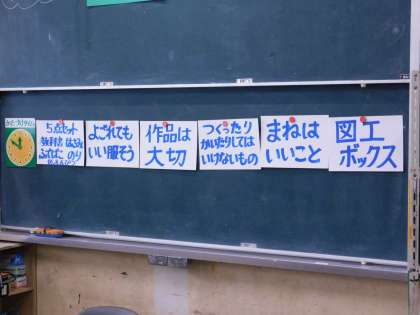 5点セット
ふでばこ のり
よごれても
いい服そう
作品は
大切
つくったり
かいたりしては
いけないもの
まねは
いいこと
図工
ボックス